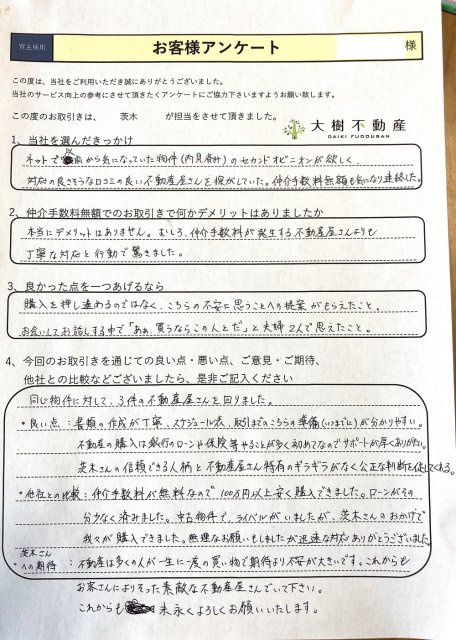 買主様用
お客様アンケート
様
この度は、当社をご利用いただき誠にありがとうございました。
当社のサービス向上の参考にさせて頂きたくアンケートにご協力下さいますようお願い致します。
この度のお取引きは、 茨木 が担当をさせて頂きました。
大樹不動産
DAIKI FUDOUSAN
1、当社を選んだきっかけ
ネットで以前から気になっていた物件(内見済み)のセカンドオピニオンが欲しく、
対応の良さそうな口コミの良い不動産屋さんを探していた。仲介手数料無額も気になり連絡した。
2、仲介手数料無額でのお取引きで何かデメリットはありましたか
本当にデメリットはありません。むしろ、仲介手数料が発生する不動産屋さんよりも
丁寧な対応と行動で驚きました。
3、良かった点を一つあげるなら
購入を押し進めるのではなく、こちらの不安に思うことへの提案がもらえたこと。
お会いしてお話しする中で「あぁ、買うならこの人とだ」と夫婦2人で思えたこと。
4、今回のお取引きを通じての良い点・悪い点、ご意見・ご期待、
他社との比較などございましたら、是非ご記入ください
同じ物件に対して、3件の不動産屋さんを回りました。
・良い点:書類の作成が丁寧、スケジュール表、取引までのこちらの準備(いつまでに)が分かりやすい。
不動産の購入は銀行のローンや保険等やることが多く初めてなのでサポートが厚くありがたい。
茨木さんの信頼できる人柄と不動産屋さん特有のギラギラがなく公正な判断を促してくれる。
・他社との比較:仲介手数料が無料なので100万円以上安く購入できました。ローンがその
分少なく済みました。中古物件で、ライバルがいましたが、茨木さんのおかげで
我々が購入できました。無理なお願いもしましたが迅速な対応ありがとうございました。
・茨木さんへの期待:不動産は多くの人が一生に一度の買い物で期待より不安が大きいです。これからも
お客さんによりそった素敵な不動産屋さんでいて下さい。
これからも末永くよろしくお願いいたします。